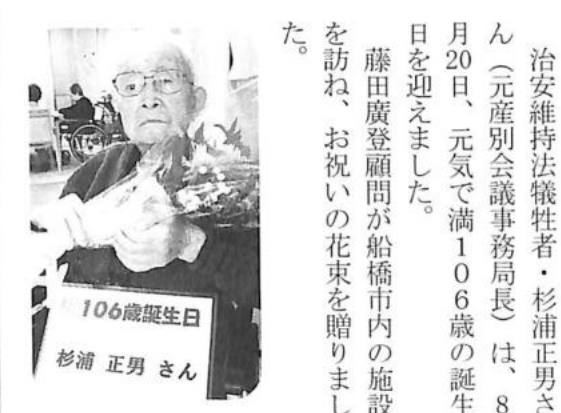 治安維持法犠牲者・杉浦正男さ
ん（元産別会議事務局長）は、8
月20日、元気で満106歳の誕生
日を迎えました。
藤田廣登顧問が船橋市内の施設
を訪ね、お祝いの花束を贈りまし
た。
106歳誕生日
杉浦 正男 さん